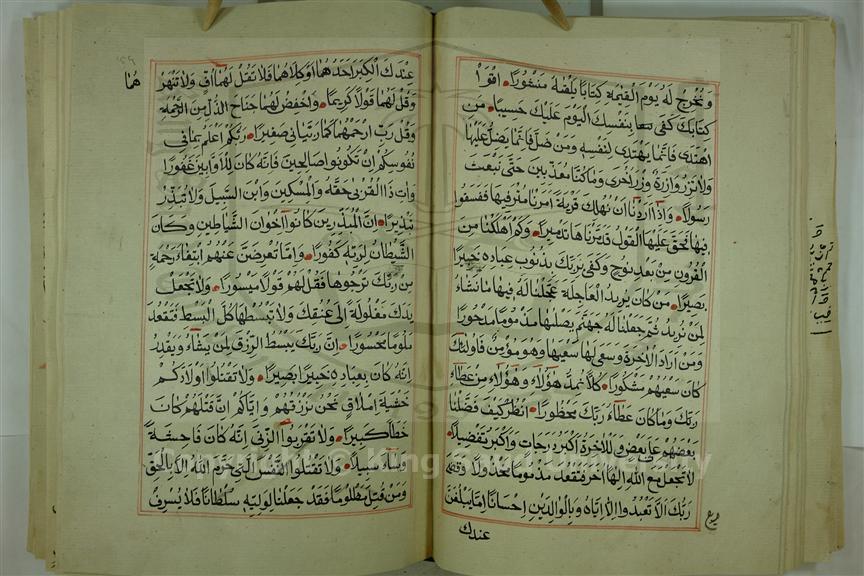 ونخرج له يوم القيمة كتابا يلقيه منشورا اقرأ
كتابك كفى بنفسك اليوم عليك حسيبا من
اهتدى فانما يهتدى لنفسه ومن ضل فانما يضل عليها
ولا تزر وازرة وزر اخرى وما كنا معذبين حتى نبعث
رسولا واذا اردنا ان نهلك قرية امرنا مترفيها ففسقوا
فيها فحق عليها القول فدمرناها تدميرا وكم اهلكنا من
القرون من بعد نوح وكفى بربك بذنوب عباده خبيرا
بصيرا من كان يريد العاجلة عجلنا له فيها ما نشاء
لمن نريد ثم جعلنا له جهنم يصلها مذموما مدحورا
ومن اراد الاخرة وسعى لها سعيها وهو مؤمن فاولئك
كان سعيهم مشكورا كلا نمد هؤلاء وهؤلاء من عطاء
ربك وما كان عطاء ربك محظورا انظر كيف فضلنا
بعضهم على بعض وللاخرة اكبر درجات واكبر تفضيلا
لا تجعل مع الله الها اخر فتقعد مذموما مخذولا وقضى
ربك الا تعبدوا الا اياه وبالوالدين احسانا اما يبلغن
عندك
عندك الكبر احدهما او كلاهما فلا تقل لهما اف ولا تنهر
هما
وقل لهما قولا كريما واخفض لهما جناح الذل من الرحمة
وقل رب ارحمهما كما ربيانى صغيرا ربكم اعلم بما فى
نفوسكم ان تكونوا صالحين فانه كان للاوابين غفورا
وات ذا القربى حقه والمسكين وابن السبيل ولا تبذر
تبذيرا ان المبذرين كانوا اخوان الشياطين وكان
الشيطان لربه كفورا واما تعرضن عنهم ابتغاء رحمة
من ربك ترجوها فقل لهم قولا ميسورا ولا تجعل
يدك مغلولة الى عنقك ولا تبسطها كل البسط فتقعد
ملوما محسورا ان ربك يبسط الرزق لمن يشاء ويقدر
انه كان بعباده خبيرا بصيرا ولا تقتلوا اولادكم
خشية املاق نحن نرزقهم واياكم ان قتلهم كان
خطأ كبيرا ولا تقربوا الزنى انه كان فاحشة
وساء سبيلا ولا تقتلوا النفس التى حرم الله الا بالحق
ومن قتل مظلوما فقد جعلنا لوليه سلطانا فلا يسرف
Copyright © King Saud University